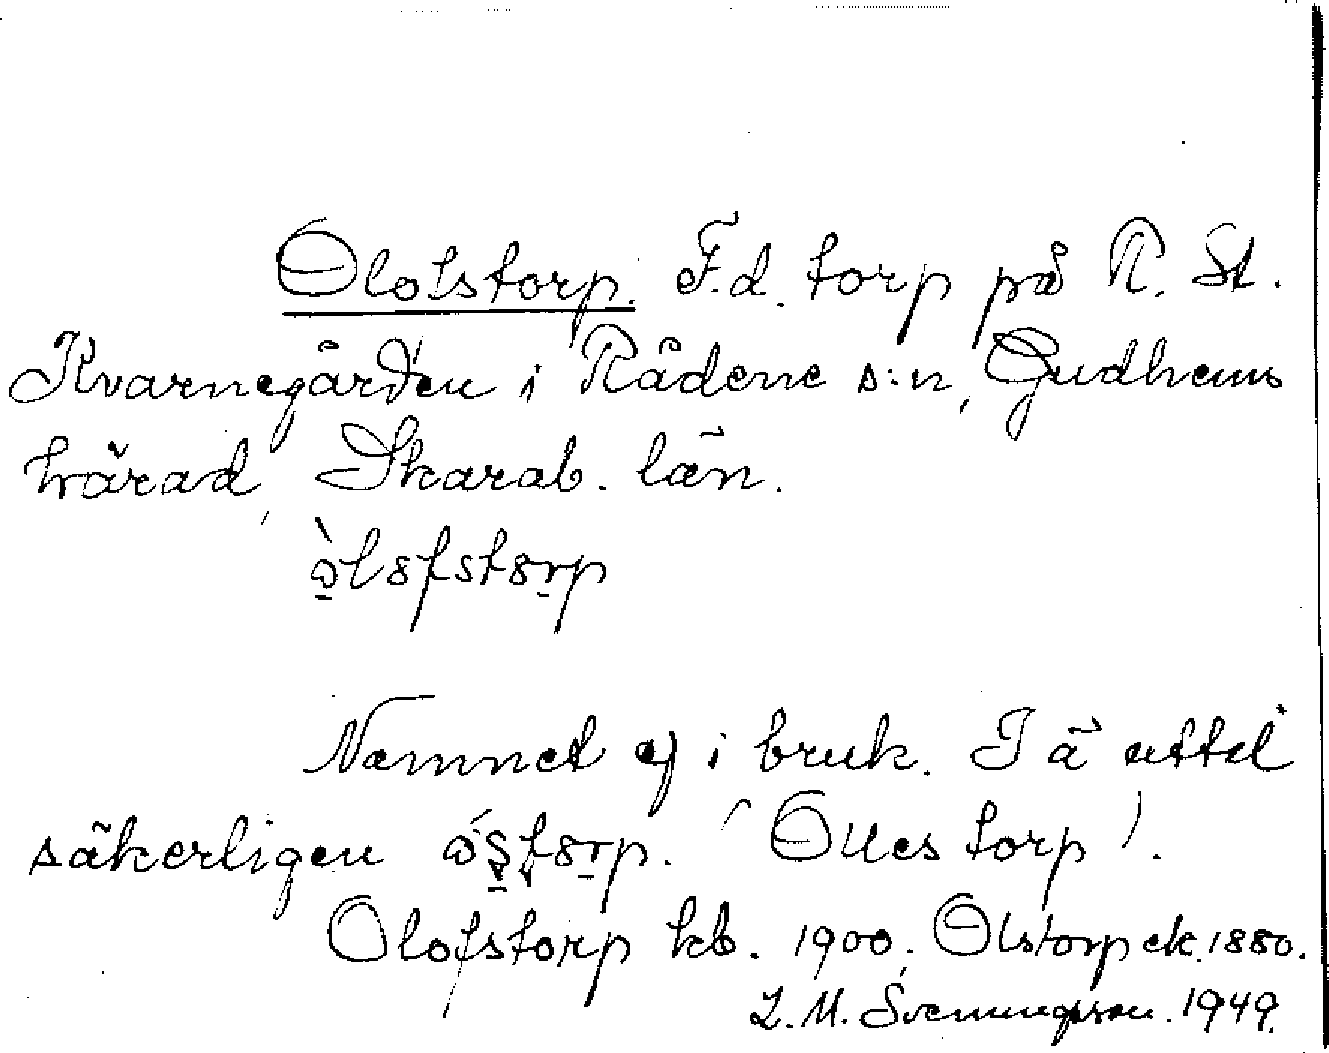 Olofstorp. F.d. torp på R. St.
Kvarnegården i Rådene s:n, Gudhems
härad, Skarab. län.
òlofstorp
Namnet ej i bruk. I ä uttal
säkerligen
(Olles torp).
Olofstorp kb. 1900. Olstorp ek. 1880.
L. M. Svenungsson. 1949.